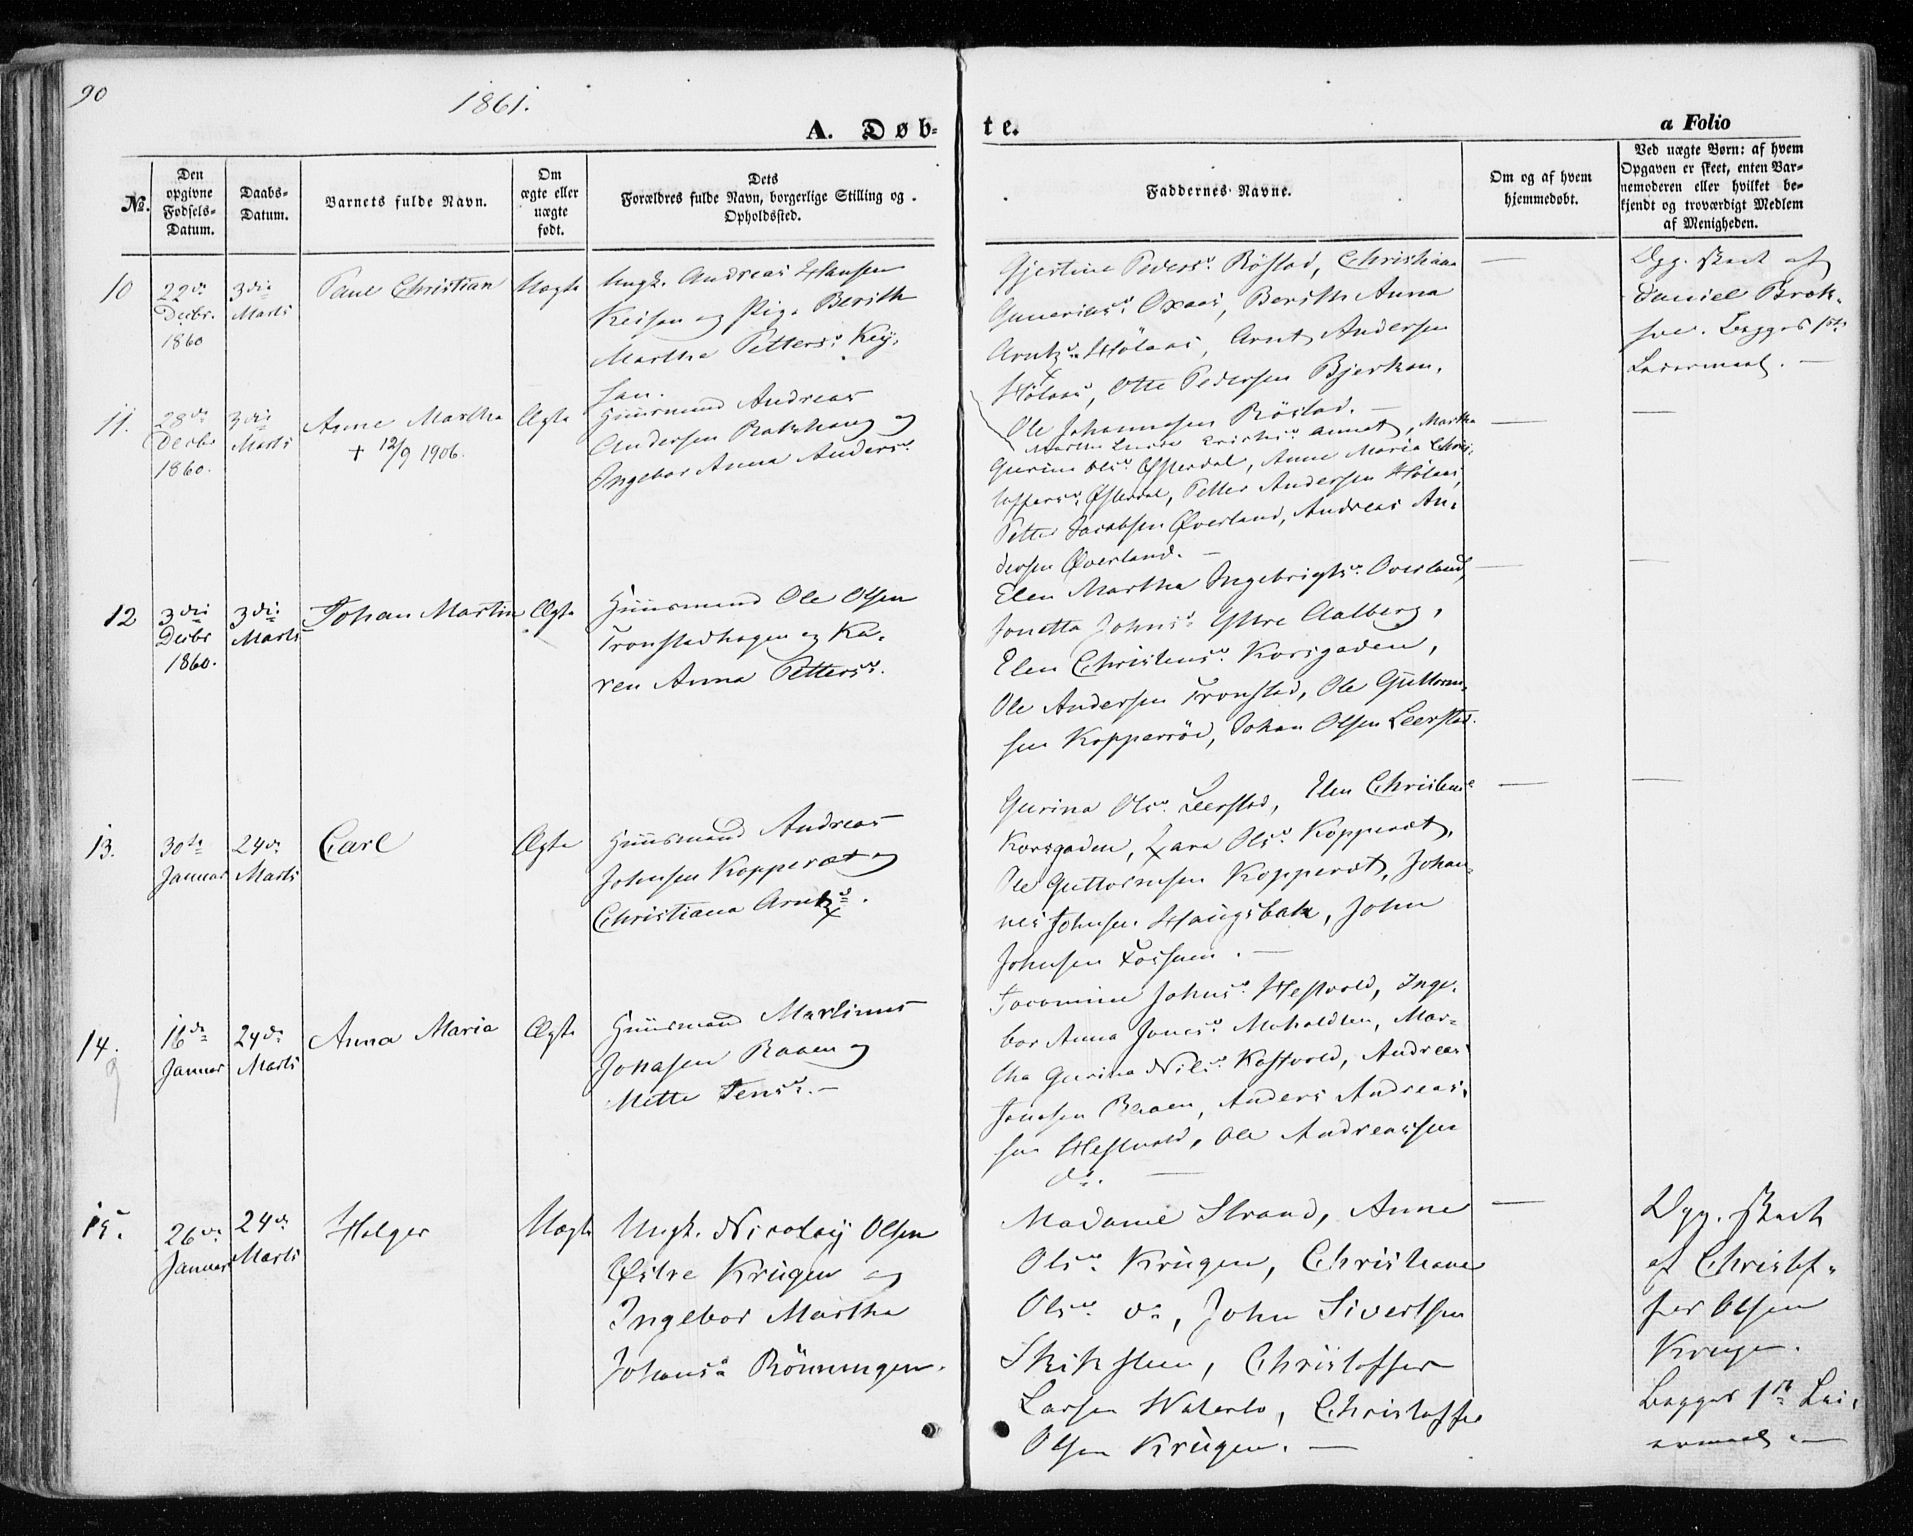 90
1861.
A. Døb-
te.
a Folio
No.
Den opgivne Fødsels-Datum.
Daabs-Datum.
Barnets fulde Navn.
Om ægte eller uægte født.
Dets Forældres fulde Navn, borgerlige Stilling og Opholdssted.
Faddernes Navne.
Om og af hvem hjemmedøbt.
Ved uægte Børn: af hvem Opgaven er skeet, enten Barnemoderen eller hvilket bekjendt og troværdigt Medlem af Menigheden.
10
22de
Decbr.
1860
3die
Marts
Paul Christian
Uægte
Ungk. Andreas Hansen
og Pige Berith
Martha Petters.
Gjestine Peders. Röstad, Christiana
Oxaas, Berith Anna
Arnts. Hölaas, Arnt Andersen
Hölaas, Otte Pedersen Bjerkan,
Ole Johannesen Röstad.
Opg. skeet af
Daniel
Begges 1ste
Leiermaal.
11.
28de
Decbr
1860.
3die
Marts
Anne Martha
+ 12/9 1906.
Ægte
Huusmand Andreas
Andersen og
Ingebor Anna Anders.
Martha
Gurina Ols. Østerdal, Anne Maria Chris-
toffers. Østerdal, Petter Andersen Hölaas,
Petter Jacobsen Øverland, Andreas An-
dersen Øverland.
12
3die
Decbr
1860.
3die
Marts
Johan Martin
Ægte
Huusmand Ole Olsen
Tronstadhagen og Ka-
ren Anna Petters.
Elen Martha Ingebrigts. Overland,
Jonetta Johns. Yttre Aalberg,
Elen Christens. Korsgaden,
Ole Andersen Tronstad, Ole Guttorm-
sen Kopperröe, Johan Olsen Leerstad.
13.
30te
Januar
24de
Marts
Carl
Ægte
Huusmand Andreas
Johnsen Kopperæt og
Christiana Arnts.
Gurina Ols. Leerstad, Elen Christens.
Korsgaden, Lara Ols. Kopperæt,
Ole Guttormsen Kopperæt, Johan-
nes Johnsen Haugsbak, John
Johnsen Fossum.
14.
16de
Januar
24de
Marts
Anna Maria
Ægte
Huusmand Martinus
Jonasen Raaen og
Mette Jens.
Jacomine Johns. Hestvold, Inge-
bor Anna Jonas. Moholdten, Mar-
tha Gurina Nils. Kostvold, Andreas
Jonasen Raaen, Anders Andreas-
sen Hestvold, Ole Andreassen
do.
15.
26de
Januar
24de
Marts
Holger
Uægte
Ungk. Nicolay Olsen
Østre Krügen og
Ingebor Martha
Johans. Rönningen.
Madame Strand, Anne
Ols. Krügen, Christiane
Ols. do, John Sivertsen
Skikstuen, Christoffer
Larsen Waterlo, Christoffer
Olsen Krügen.
Opg. skeet
af Christof-
fer Olsen
Krügen.
Begges 1ste Lei-
ermaal.